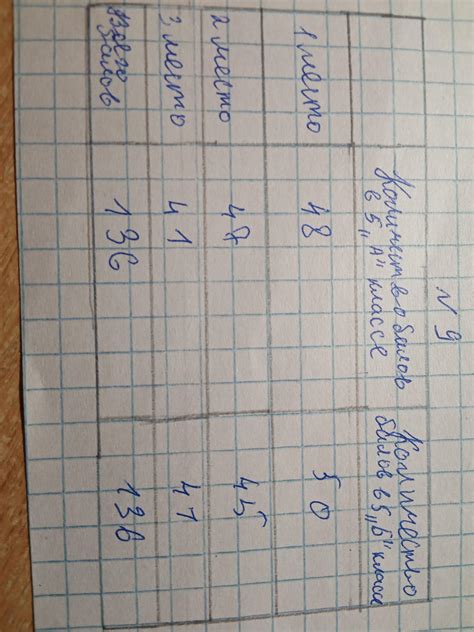 N 9
Количество балов
в 5 „А" классе
Количество
балов в 5 „Б" класса
1 место 48 50
2 место 47 45
3 место 41 41
Всего
балов 136 136